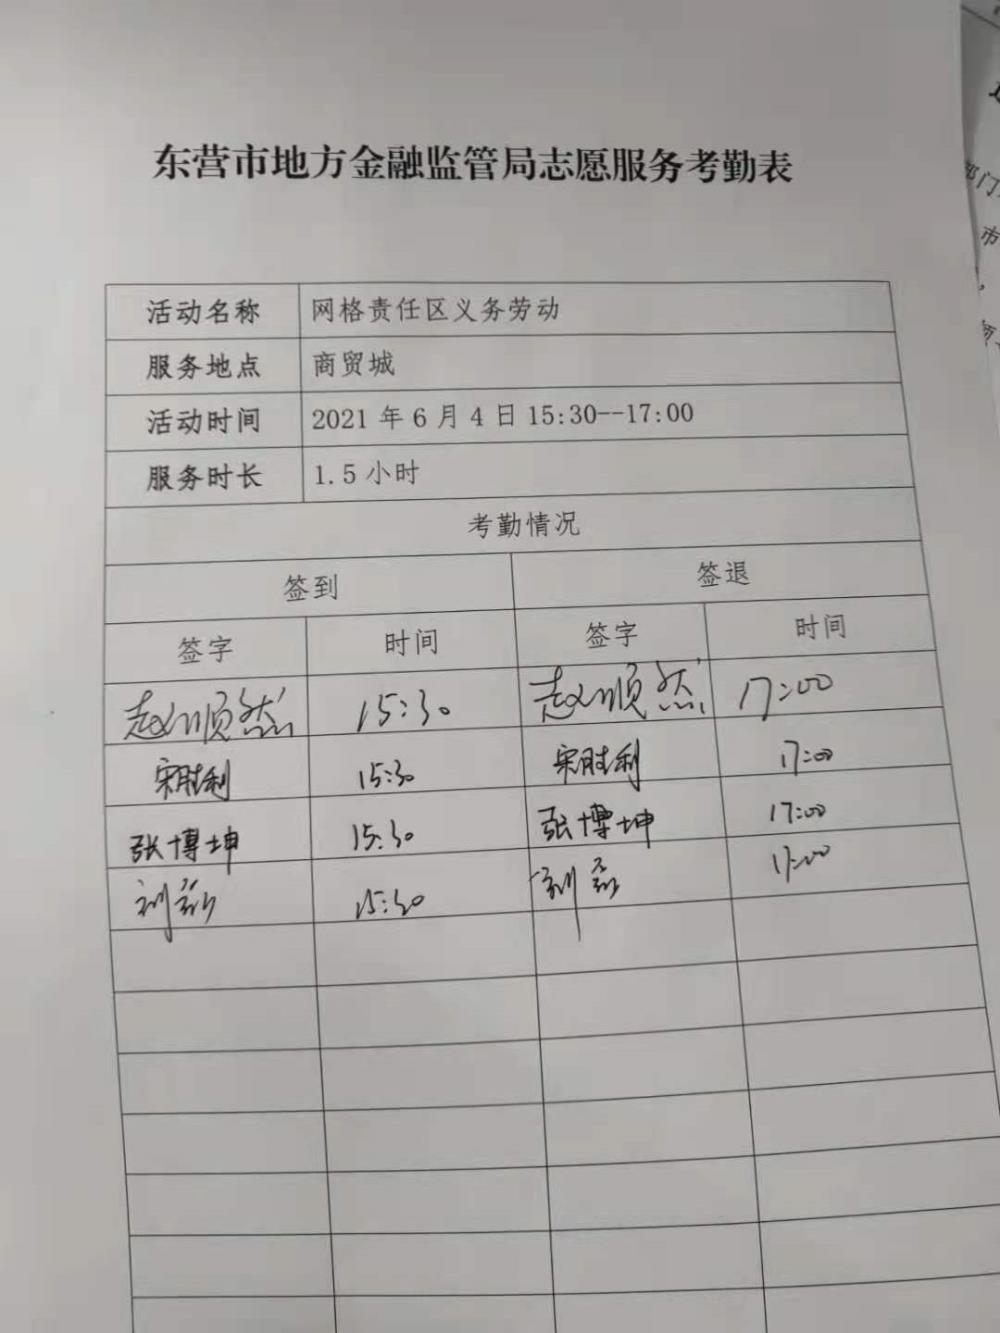 东营市地方金融监管局志愿服务考勤表
活动名称 网格责任区义务劳动
服务地点 商贸城
活动时间 2021 年 6 月 4 日 15:30--17:00
服务时长 1.5 小时
考勤情况
签到 签退
签字 时间 签字 时间
赵顺然 15:30 赵顺然 17:00
宋胜利 15:30 宋胜利 17:00
张博坤 15:30 张博坤 17:00
刘 15:30 刘 17:00
部门
市